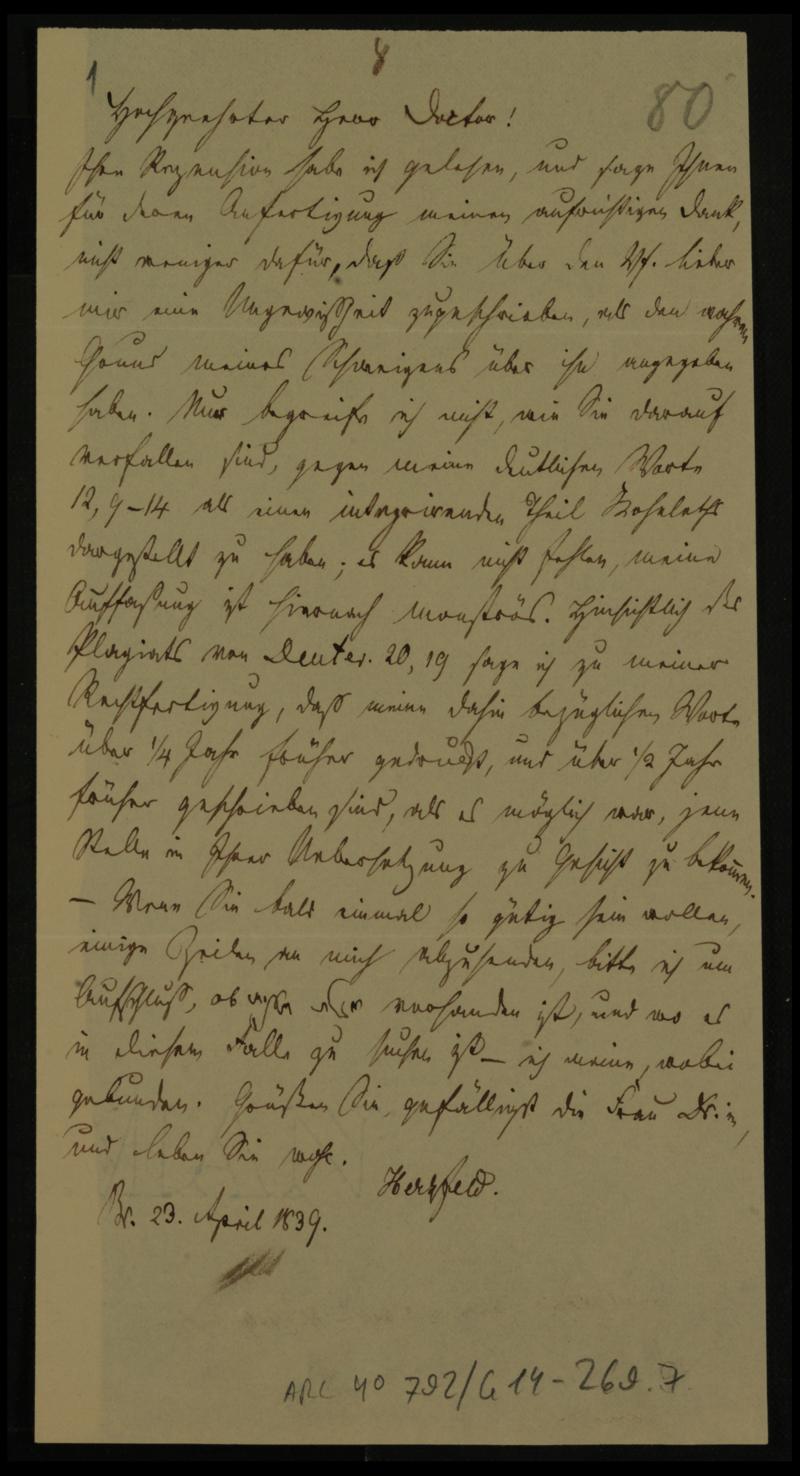 8
1
80
Hochgeehrter Herr Doctor!
Ihre Rezension habe ich gelesen, und sage Ihnen
für deren Anfertigung meinen aufrichtigen Dank,
nicht weniger dafür, daß Sie über den Vf. lieber
mir eine Ungewißheit zugeschrieben, als den wahren
Grund meines Schweigens über ihn angegeben
haben. Nur begreife ich nicht, wie Sie darauf
verfallen sind, gegen meine deutlichen Worte
12, 9–14 als einen integrirenden Theil Kohelets
dargestellt zu haben; es kann nicht fehlen, meine
Auffassung ist hiernach monströs. Hinsichtlich des
Plagiats von Deuter. 20, 19 sage ich zu meiner
Rechtfertigung, daß meine dahin bezüglichen Worte
über 1/4 Jahr früher gedruckt, und über 1/2 Jahr
früher geschrieben sind, als es möglich war, jene
Stelle in Ihrer Uebersetzung zu Gesicht zu bekommen.
— Wenn Sie bald einmal so gütig sein wollen,
einige Zeilen an mich abzusenden, bitte ich um
Aufschluß, ob vorhanden ist, und wo es
in diesem Falle zu suchen ist — ich meine, wobei
gebunden. Grüßen Sie gefälligst die Frau Dr.in,
und leben Sie wohl.
Herzfeld.
Br. 23. April 1839.
ARC 4° 792/G 14-269.7